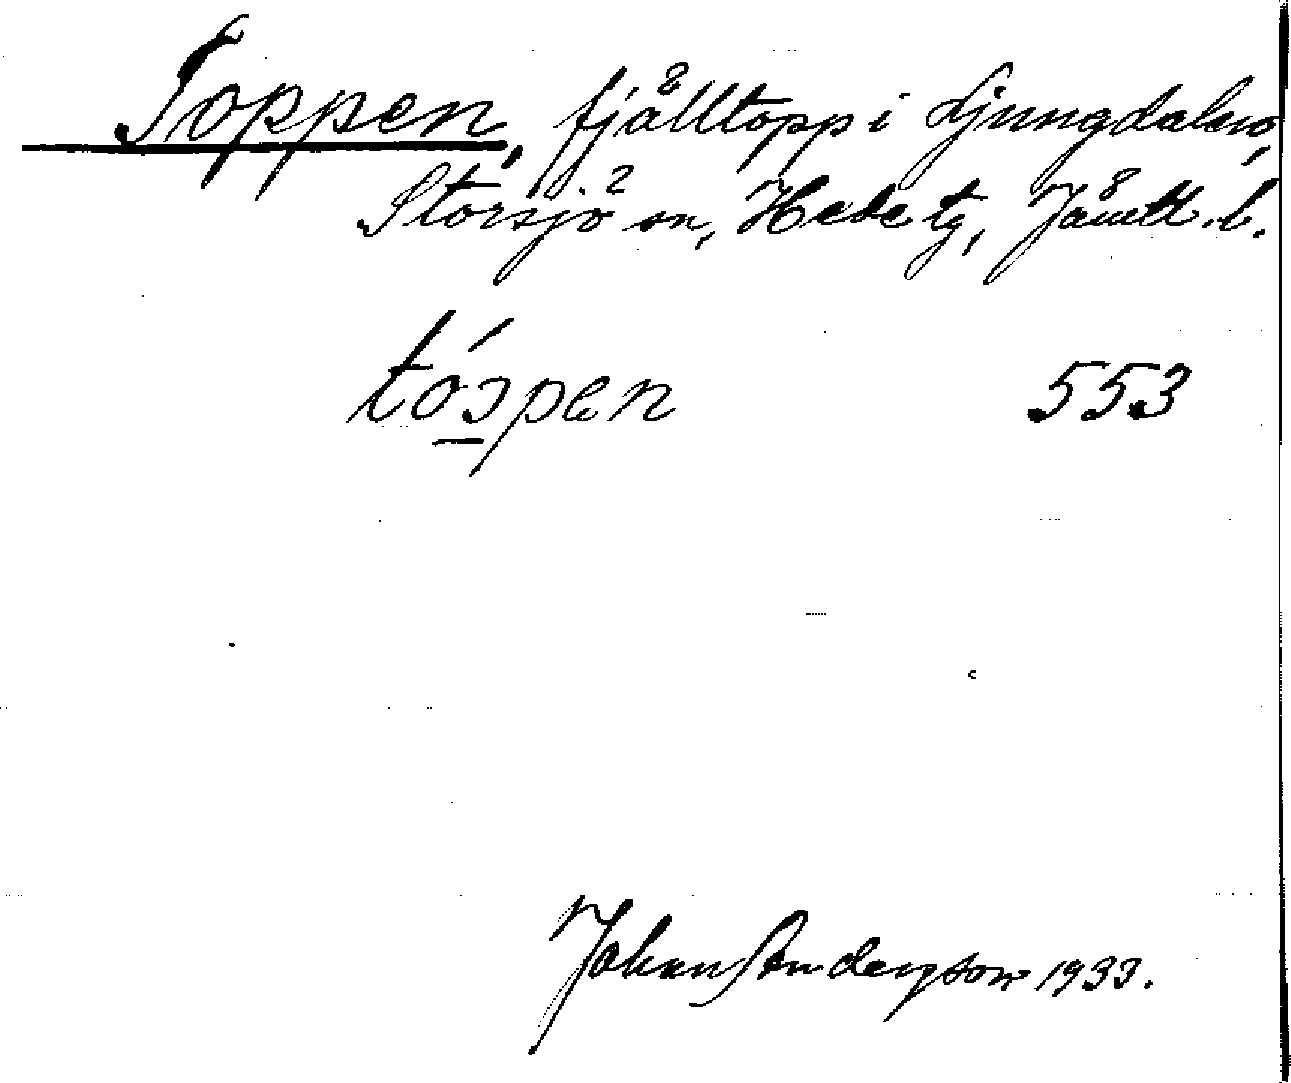 Toppen, fjälltopp i Ljungdalen,
Storsjö sn, Hede tg, Jämtl. l.
tóspen 553
Johan Anderson 1933.